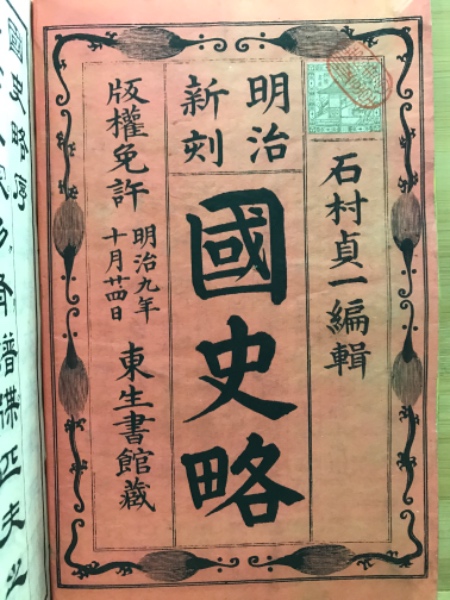 石村貞一編輯
明治
新刻
國史略
版權免許
明治九年
十月廿四日
東生書館藏
國史略序